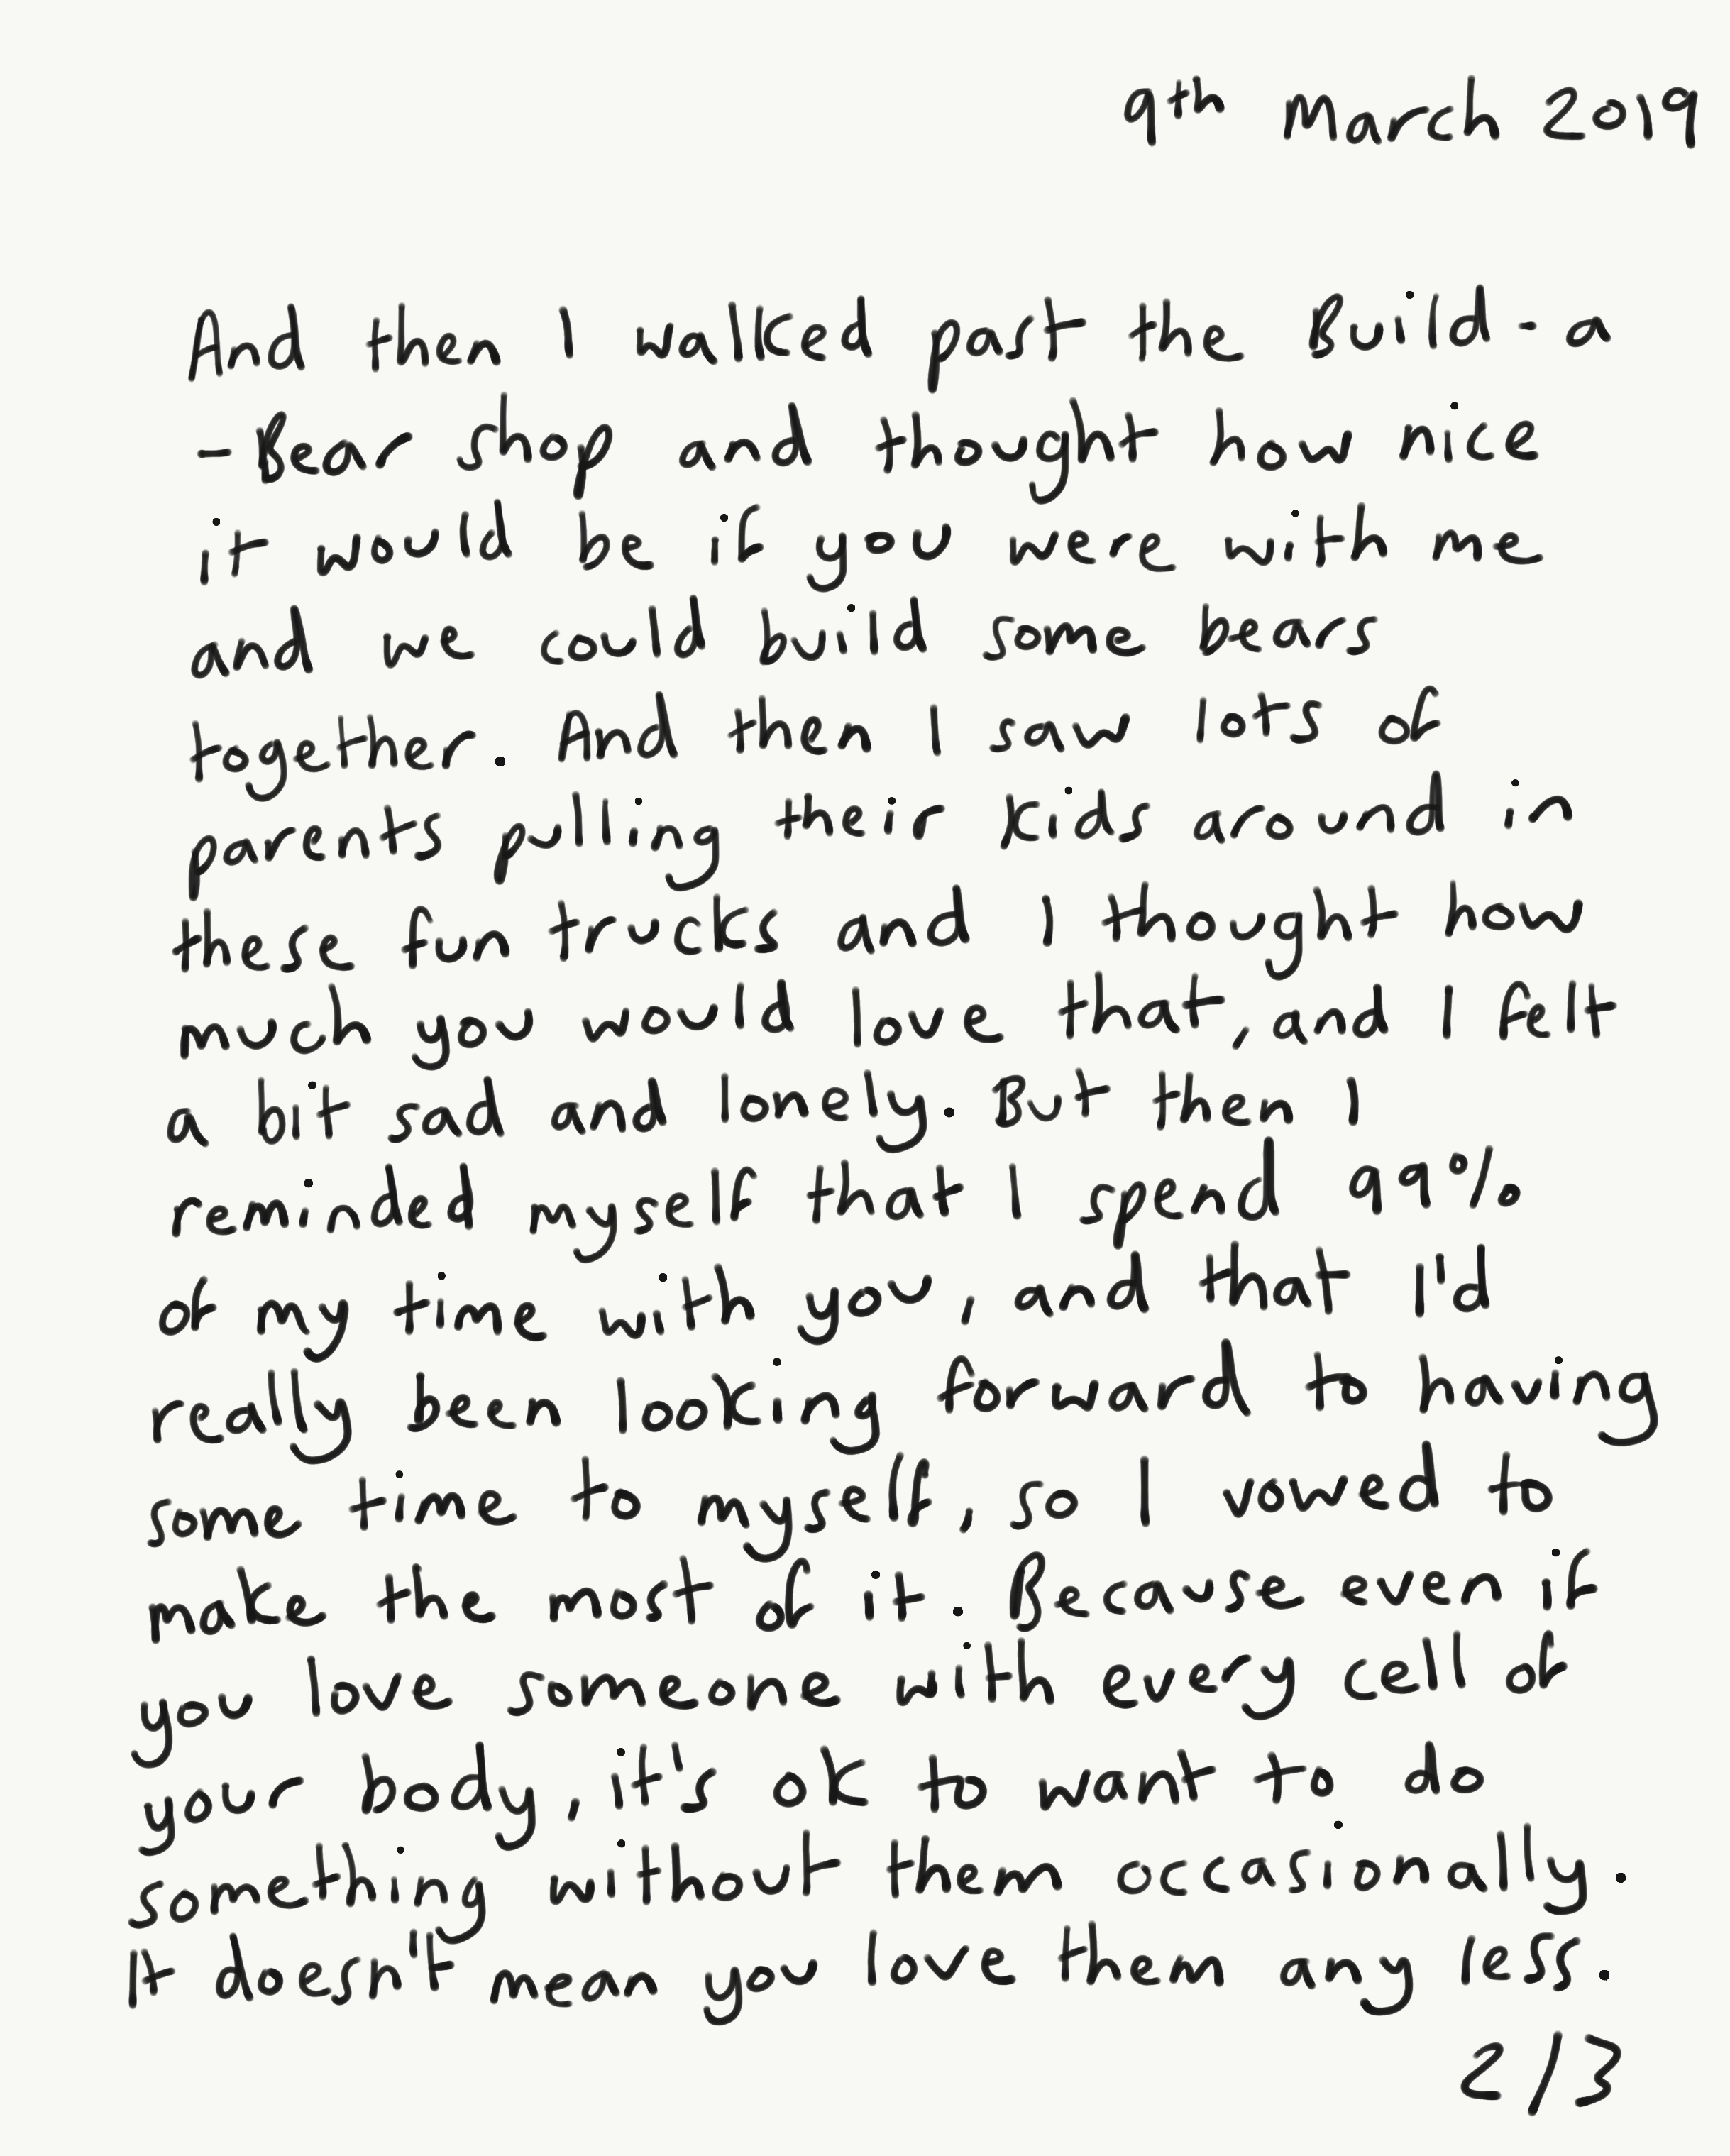 9th March 2019
And then I walked past the Build-a
-Bear shop and thought how nice
it would be if you were with me
and we could build some bears
together. And then I saw lots of
parents pulling their kids around in
these fun trucks and I thought how
much you would love that, and I felt
a bit sad and lonely. But then I
reminded myself that I spend 99%
of my time with you, and that I'd
really been looking forward to having
some time to myself, so I vowed to
make the most of it. Because even if
you love someone with every cell of
your body, it's ok to want to do
something without them occasionally.
It doesn't mean you love them any less.
2/3